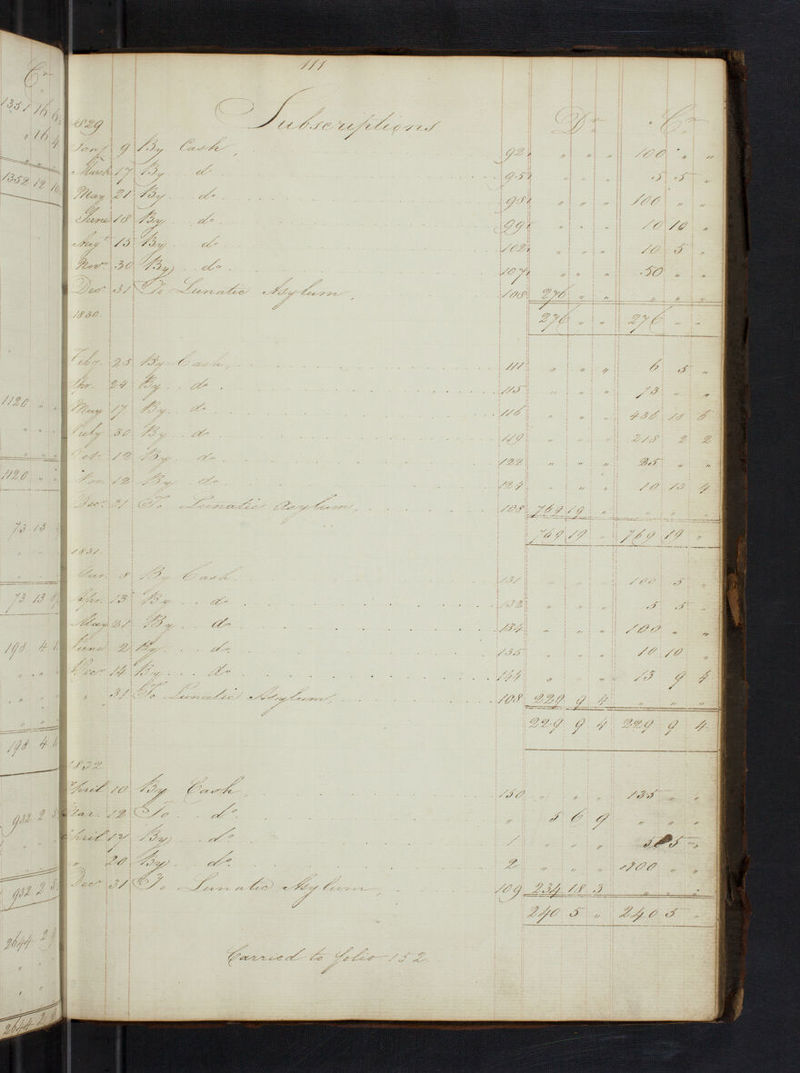 111
Subscriptions Dr Cr
1829
Jany 9 By Cash 92 " " " 100 " "
March 17 By do 95 " " " 5 5 "
May 21 By do 98 " " " 100 " "
June 18 By do 99 " " " 10 10 "
Augt 15 By do 102 " " " 10 5 "
Novr 30 By do 107 " " " 50 " "
Decr 31 To Lunatic Asylum 108 276 " " " " "
276 " " 276 " "
1830
Feby 25 By Cash 111 " " " 6 5 "
24 By do 115 " " " 73 " "
May 17 By do 116 " " " 436 18 6
July 30 By do 119 " " " 218 2 2
Oct 12 By do 122 " " " 25 " "
Nov 12 By do 124 " " " 10 13 4
Decr 31 To Lunatic Asylum 108 769 19 " " " "
769 19 " 769 19 "
1831
Mar 8 By Cash 131 " " " 100 5 "
Apr 13 By do 132 " " " 5 5 "
May 31 By do 134 " " " 100 " "
June 2 By do 135 " " " 10 10 "
Decr 14 By do 144 " " " 13 9 4
" 31 To Lunatic Asylum 108 229 9 4 " " "
229 9 4 229 9 4
1832
April 10 By Cash 150 " " " 135 " "
Mar 12 To do " 5 6 9 " " "
April 17 By do 1 " " " 5 5 "
" 20 By do 2 " " " 100 " "
Decr 31 To Lunatic Asylum 109 234 18 3 " " "
240 5 " 240 5 "
Carried to folio 152
Cr
1351 16 6
" 16 4
1352 12 10
1120 " "
1120 " "
73 13
73 13
198 4
198 4
932 2
932 2
2644 2
2644 2